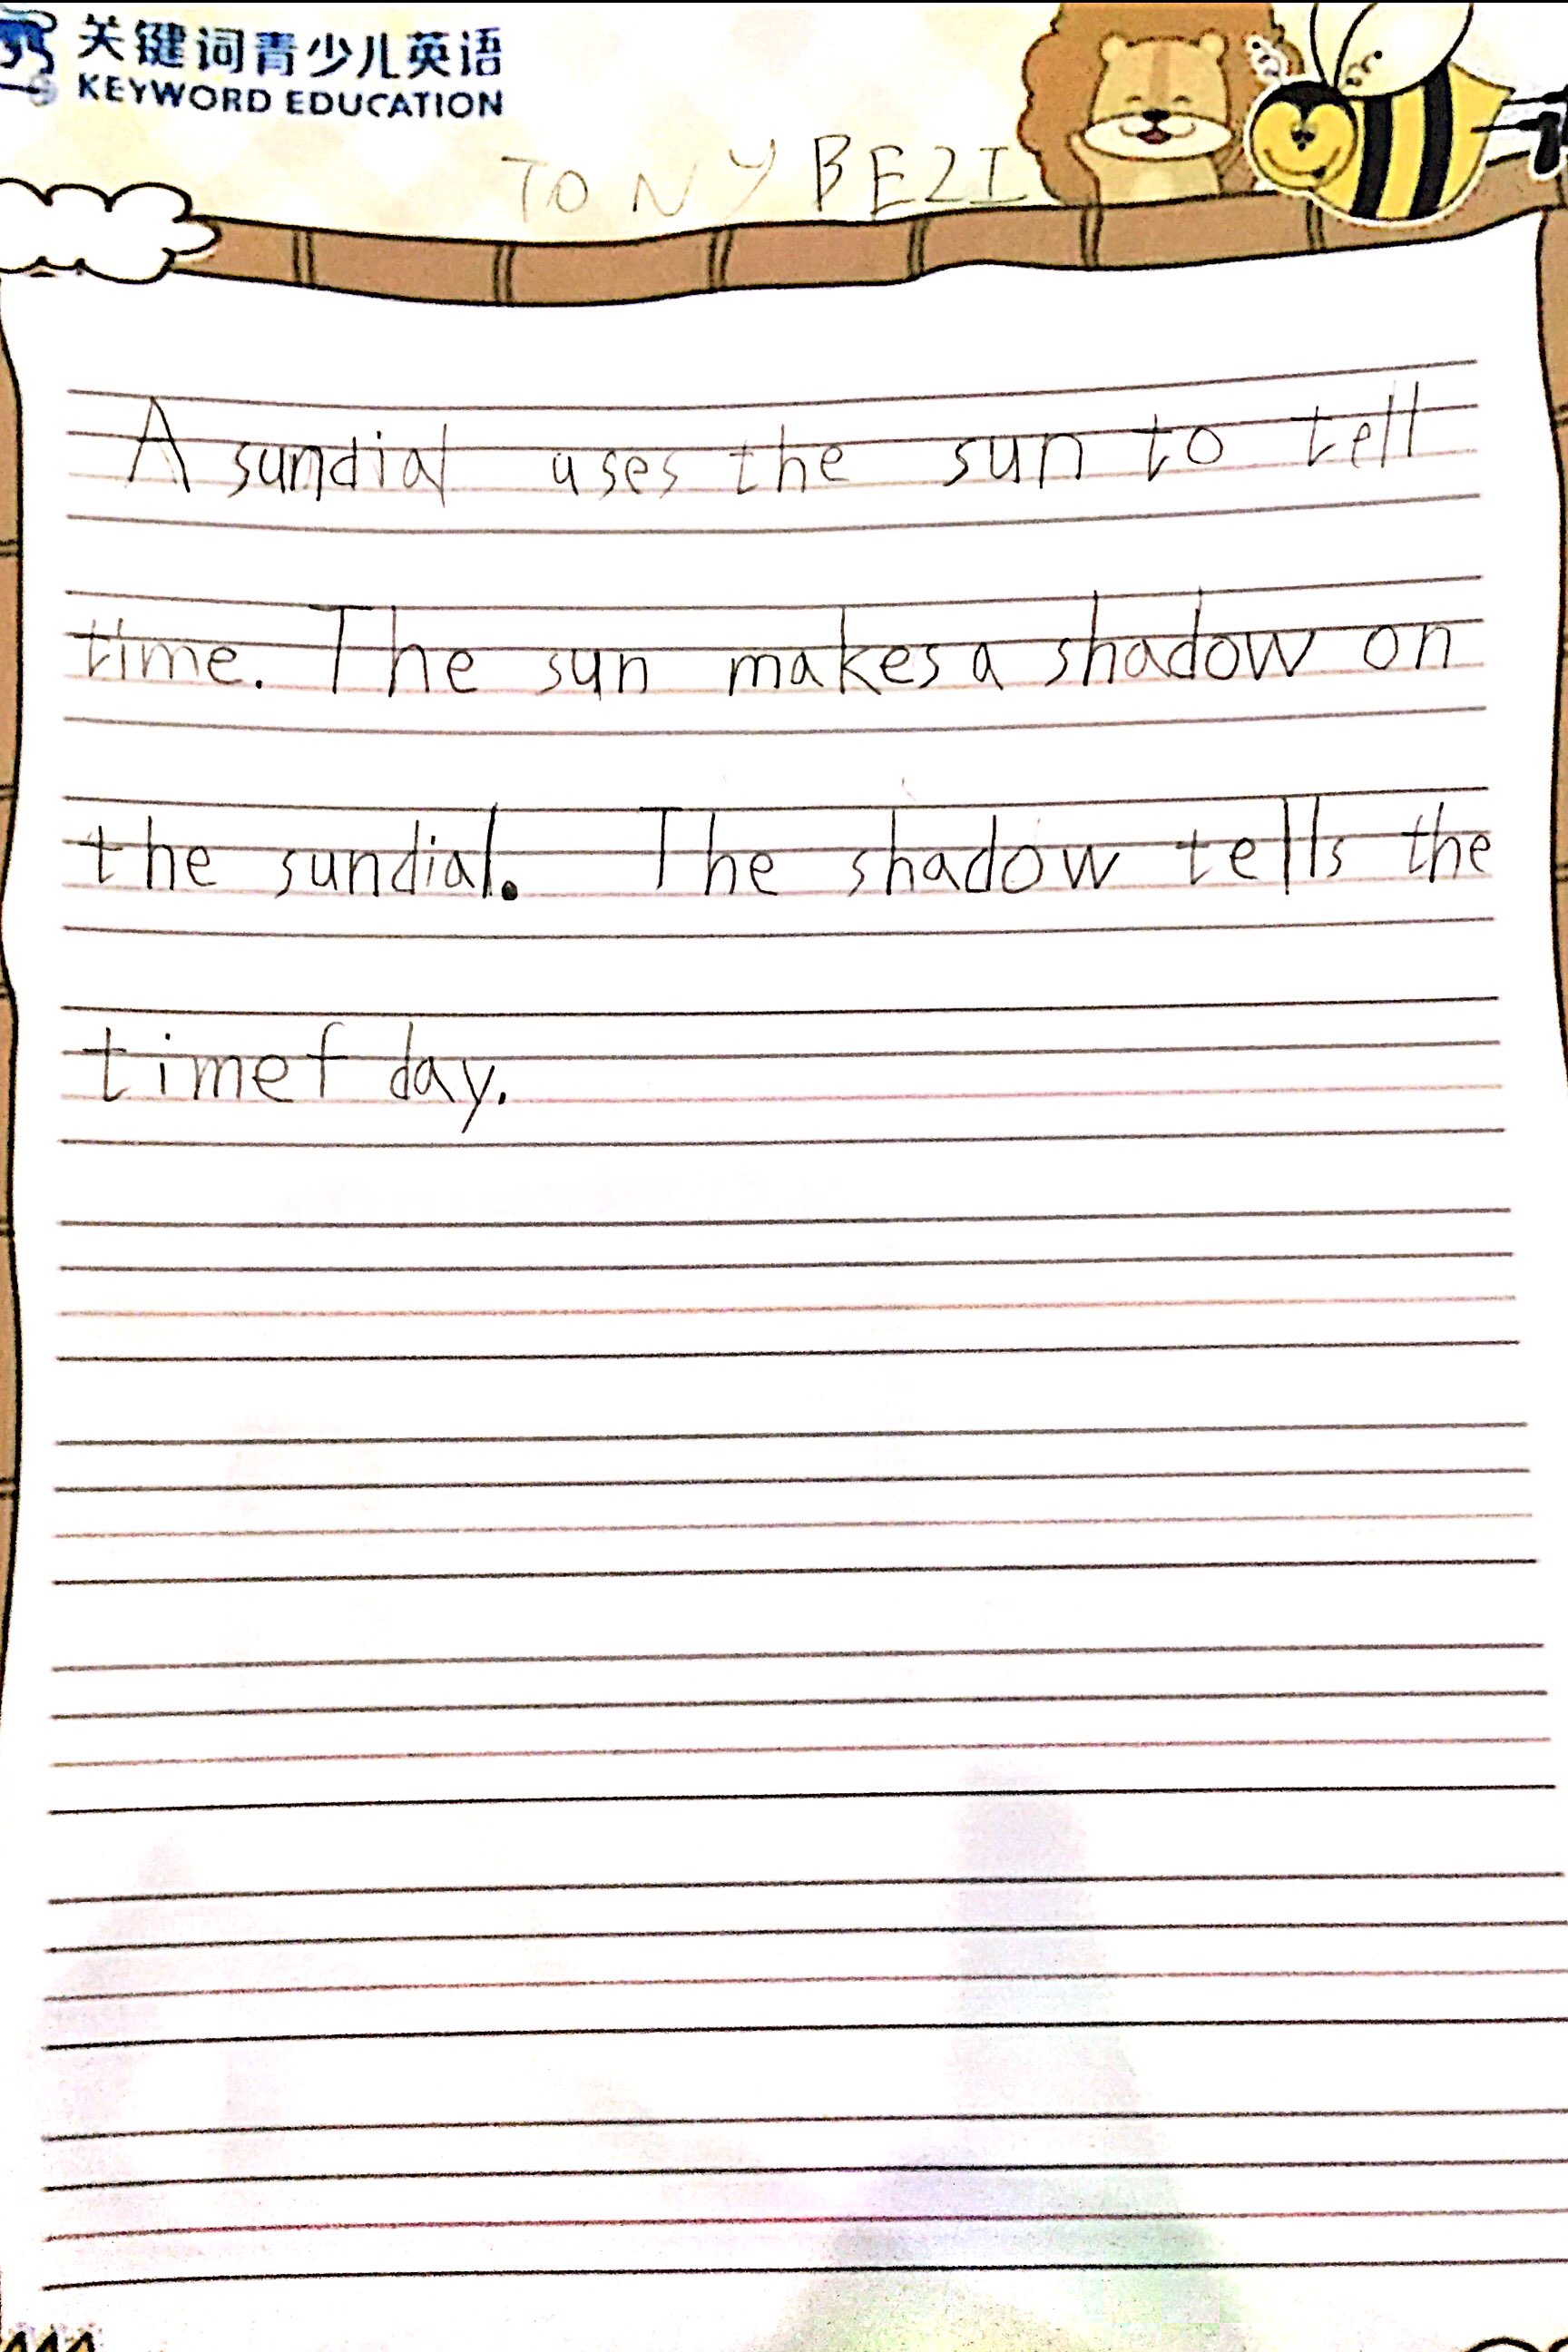 关键词青少儿英语
KEYWORD EDUCATION
TONY BE2I
A sundial uses the sun to tell
time. The sun makes a shadow on
the sundial. The shadow tells the
timef day.